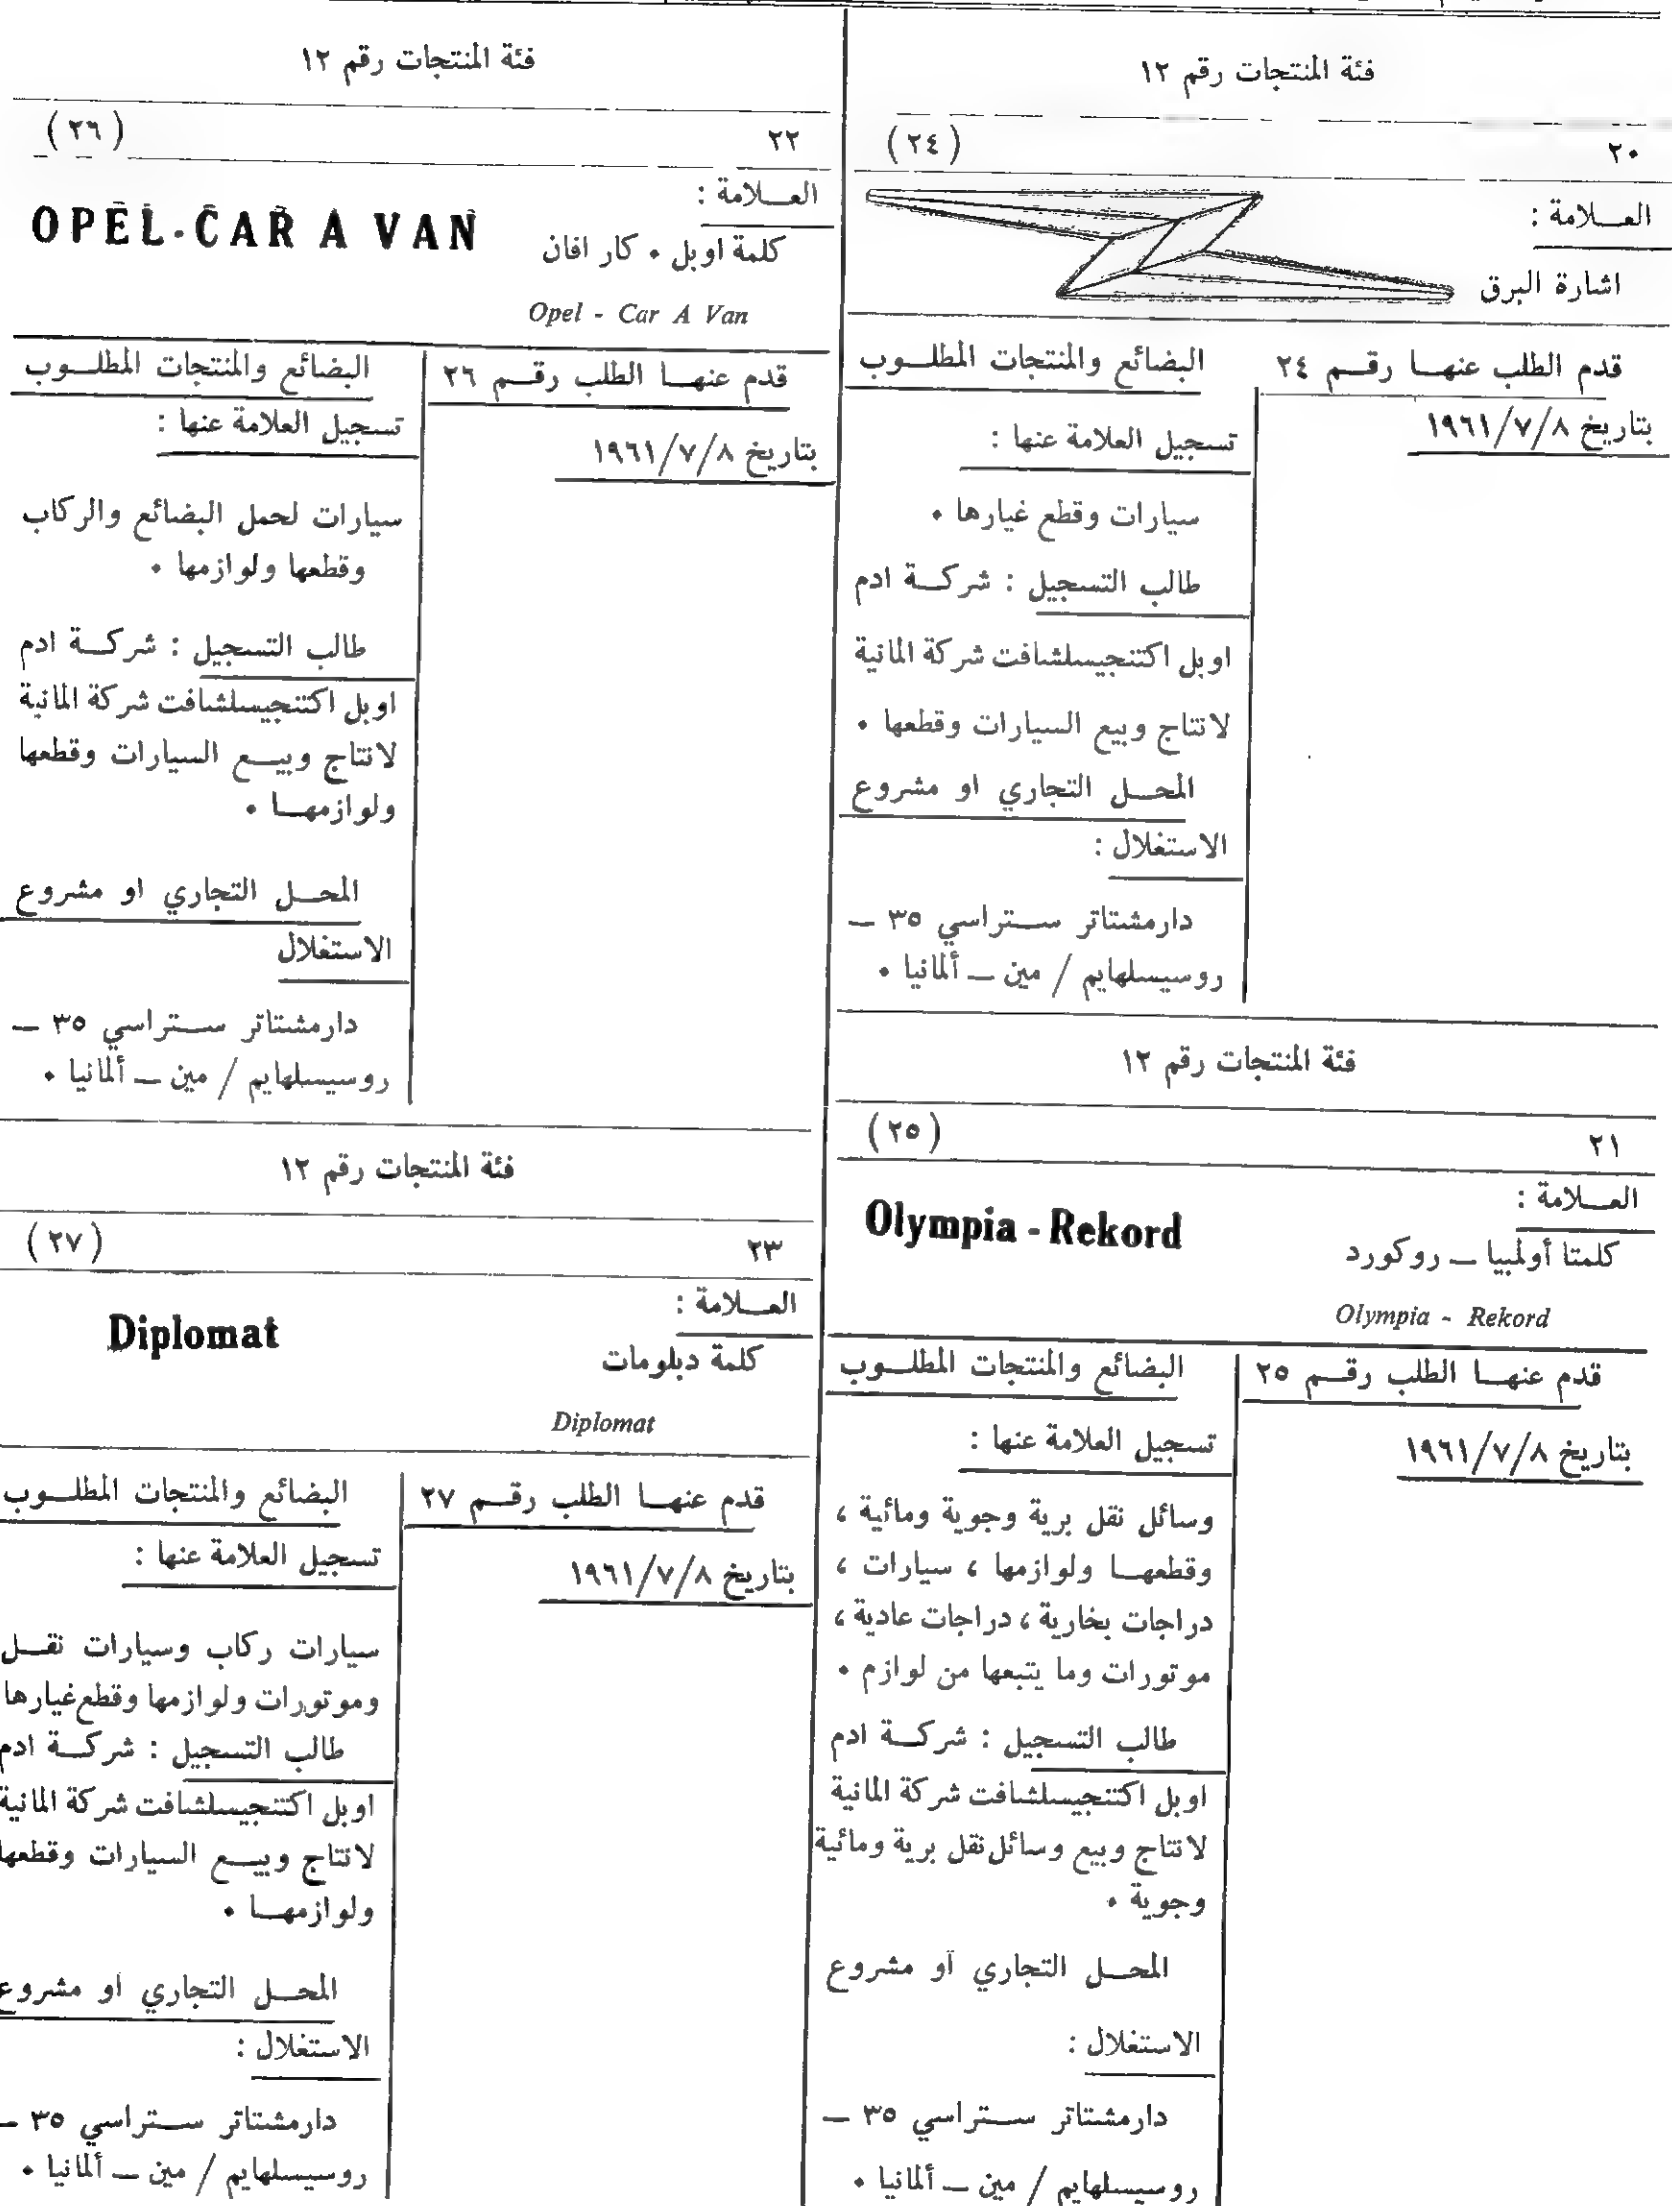 فئة المنتجات رقم ١٢
٢٠ (٢٤)
العـــلامة :
اشارة البرق
قدم الطلب عنهـــا رقـــم ٢٤
بتاريخ ١٩٦١/٧/٨
البضائع والمنتجات المطلـــوب
تسجيل العلامة عنها :
سيارات وقطع غيارها ٠
طالب التسجيل : شركـــة ادم
اوبل اكتنجيسلشافت شركة المانية
لانتاج وبيع السيارات وقطعها ٠
المحـــل التجاري او مشروع
الاستغلال :
دارمشتاتر ســـتراسي ٣٥ ــ
روسيسلهايم / مين ــ ألمانيا ٠
فئة المنتجات رقم ١٢
٢١ (٢٥)
العـــلامة :
كلمتا أولمبيا ــ روكورد
Olympia - Rekord
Olympia - Rekord
قدم عنهـــا الطلب رقـــم ٢٥
بتاريخ ١٩٦١/٧/٨
البضائع والمنتجات المطلـــوب
تسجيل العلامة عنها :
وسائل نقل برية وجوية ومائية ،
وقطعهـــا ولوازمها ، سيارات ،
دراجات بخارية ، دراجات عادية ،
موتورات وما يتبعها من لوازم ٠
طالب التسجيل : شركـــة ادم
اوبل اكتنجيسلشافت شركة المانية
لانتاج وبيع وسائل نقل برية ومائية
وجوية ٠
المحـــل التجاري أو مشروع
الاستغلال :
دارمشتاتر ســـتراسي ٣٥ ــ
روسيسلهايم / مين ــ ألمانيا ٠
فئة المنتجات رقم ١٢
٢٢ (٢٦)
العـــلامة :
OPEL-CAR A VAN
كلمة اوبل ٠ كار افان
Opel - Car A Van
قدم عنهـــا الطلب رقـــم ٢٦
بتاريخ ١٩٦١/٧/٨
البضائع والمنتجات المطلـــوب
تسجيل العلامة عنها :
سيارات لحمل البضائع والركاب
وقطعها ولوازمها ٠
طالب التسجيل : شركـــة ادم
اوبل اكتنجيسلشافت شركة المانية
لانتاج وبيـــع السيارات وقطعها
ولوازمهـــا ٠
المحـــل التجاري او مشروع
الاستغلال
دارمشتاتر ســـتراسي ٣٥ ــ
روسيسلهايم / مين ــ ألمانيا ٠
فئة المنتجات رقم ١٢
٢٣ (٢٧)
العـــلامة :
Diplomat
كلمة دبلومات
Diplomat
قدم عنهـــا الطلب رقـــم ٢٧
بتاريخ ١٩٦١/٧/٨
البضائع والمنتجات المطلـــوب
تسجيل العلامة عنها :
سيارات ركاب وسيارات نقـــل
وموتورات ولوازمها وقطع غيارها
طالب التسجيل : شركـــة ادم
اوبل اكتنجيسلشافت شركة المانية
لانتاج وبيـــع السيارات وقطعها
ولوازمهـــا ٠
المحـــل التجاري او مشروع
الاستغلال :
دارمشتاتر ســـتراسي ٣٥ ــ
روسيسلهايم / مين ــ ألمانيا ٠